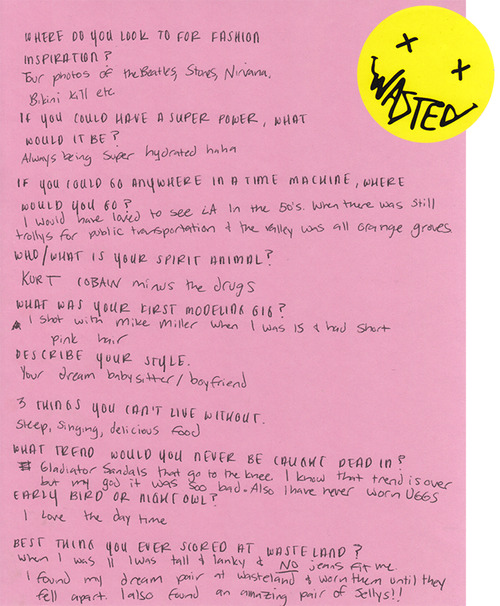 WHERE DO YOU LOOK TO FOR FASHION
INSPIRATION?
Tour photos of the Beatles, Stones, Nirvana,
Bikini Kill etc
IF YOU COULD HAVE A SUPER POWER, WHAT
WOULD IT BE?
Always being super hydrated haha
IF YOU COULD GO ANYWHERE IN A TIME MACHINE, WHERE
WOULD YOU GO?
I would have loved to see LA in the 50's. When there was still
trollys for public transportation & the valley was all orange groves.
WHO/WHAT IS YOUR SPIRIT ANIMAL?
KURT COBAIN minus the drugs
WHAT WAS YOUR FIRST MODELING GIG?
I shot with Mike Miller when I was 15 & had short
pink hair
DESCRIBE YOUR STYLE.
Your dream babysitter/boyfriend
3 THINGS YOU CAN'T LIVE WITHOUT.
Sleep, singing, delicious food
WHAT TREND WOULD YOU NEVER BE CAUGHT DEAD IN?
Gladiator Sandals that go to the knee. I know that trend is over
but my god it was soo bad. Also I have never worn UGGS
EARLY BIRD OR NIGHT OWL?
I love the day time
BEST THING YOU EVER SCORED AT WASTELAND?
When I was 11 I was tall & lanky & NO jeans fit me.
I found my dream pair at wasteland & worn them until they
fell apart. I also found an amazing pair of Jellys!!
WASTED